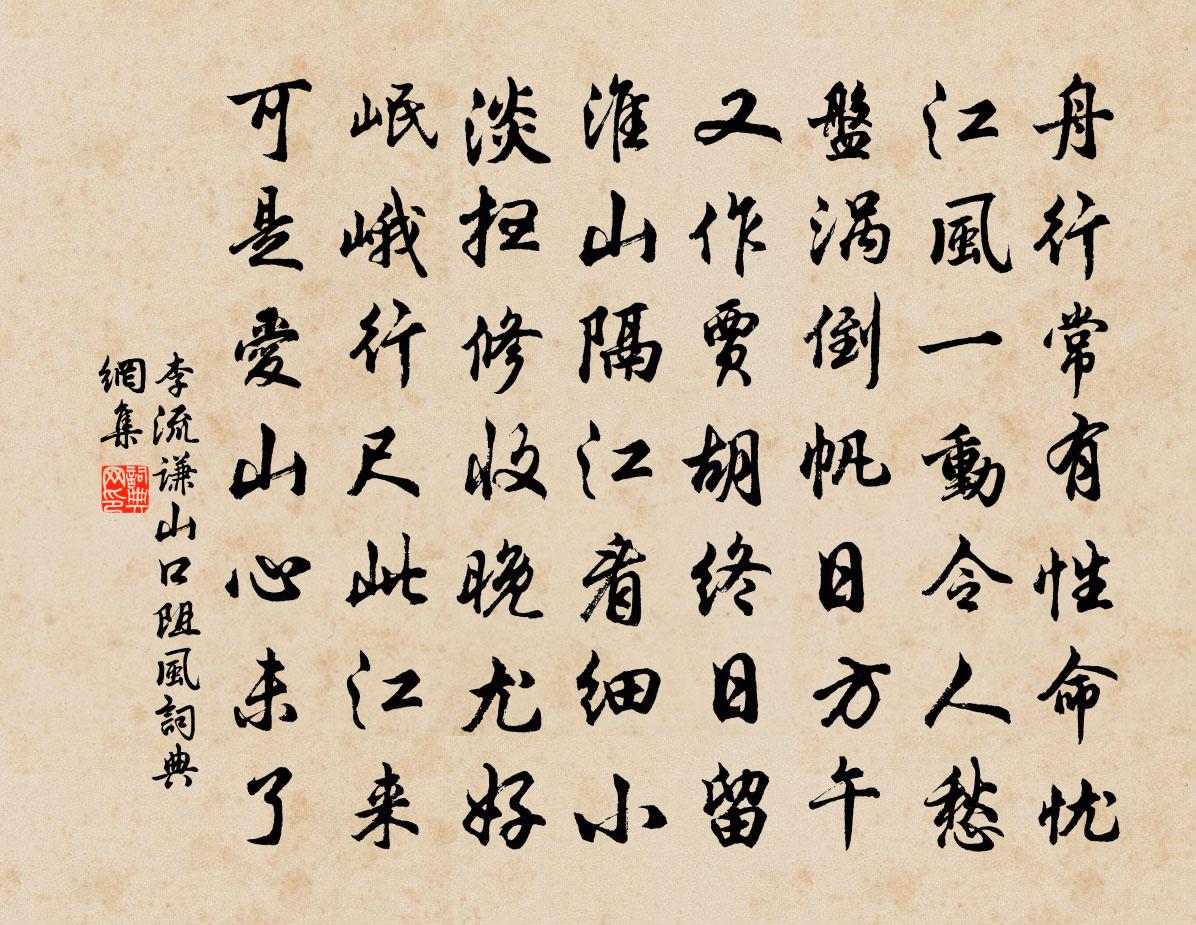 舟行常有性命忧
江風一動令人愁
盤涡倒帆日方午
又作賈胡終日留
淮山隔江看细小
淡扫修收晚尤好
岷峨行尺此江来
可是愛山心未了
李流谦山口阻風詞典
網集
詞典
网印